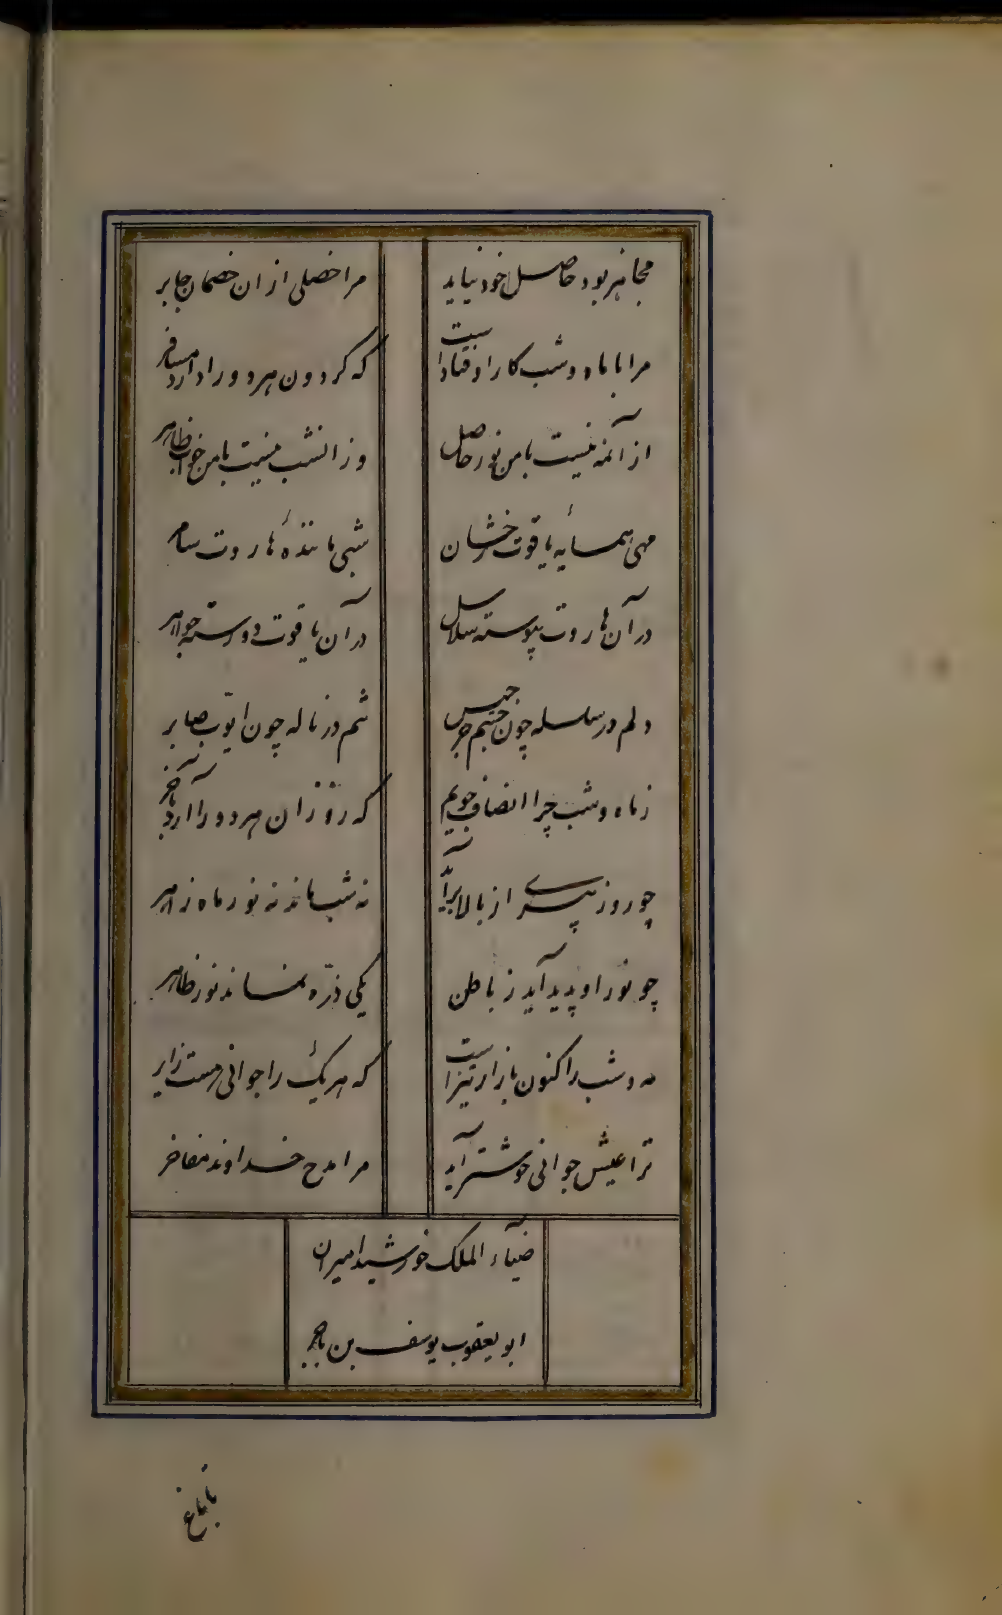 مجاهز بود حاصل خود نیاید مرا خصلی از ان خصمان جابر
مرا با ماه و شب کار اوفتادست که گردون هر دو را دارد مسافر
از آنمه نیست با من نور حاصل وز انشب نیست با من خواب ظاهر
مهی همسایهٔ یاقوت رخشان شبی مانندهٔ هاروت ساحر
در آن هاروت پیوسته سلاسل در آن یاقوت دو رسته جواهر
دلم در سلسله چون جسم جرجیس تنم در ناله چون ایّوب صابر
ز ماه و شب چرا انصاف جویم که روز ان هر دو را آرد بآخر
چو روز پیری از بالا برآید نه شب ماند نه نور ماه زاهر
چو نور او پدید آید ز باطن یکی ذرّه نماند نور ظاهر
مه و شب را کنون بازار تیزاست که هر یک را جوانی هست زایر
ترا عیش جوانی خوشتر آید مرا مدح خداوند مفاخر
ضیآء الملک خورشید امیران
ابو یعقوب یوسف بن باجر
تا باغ